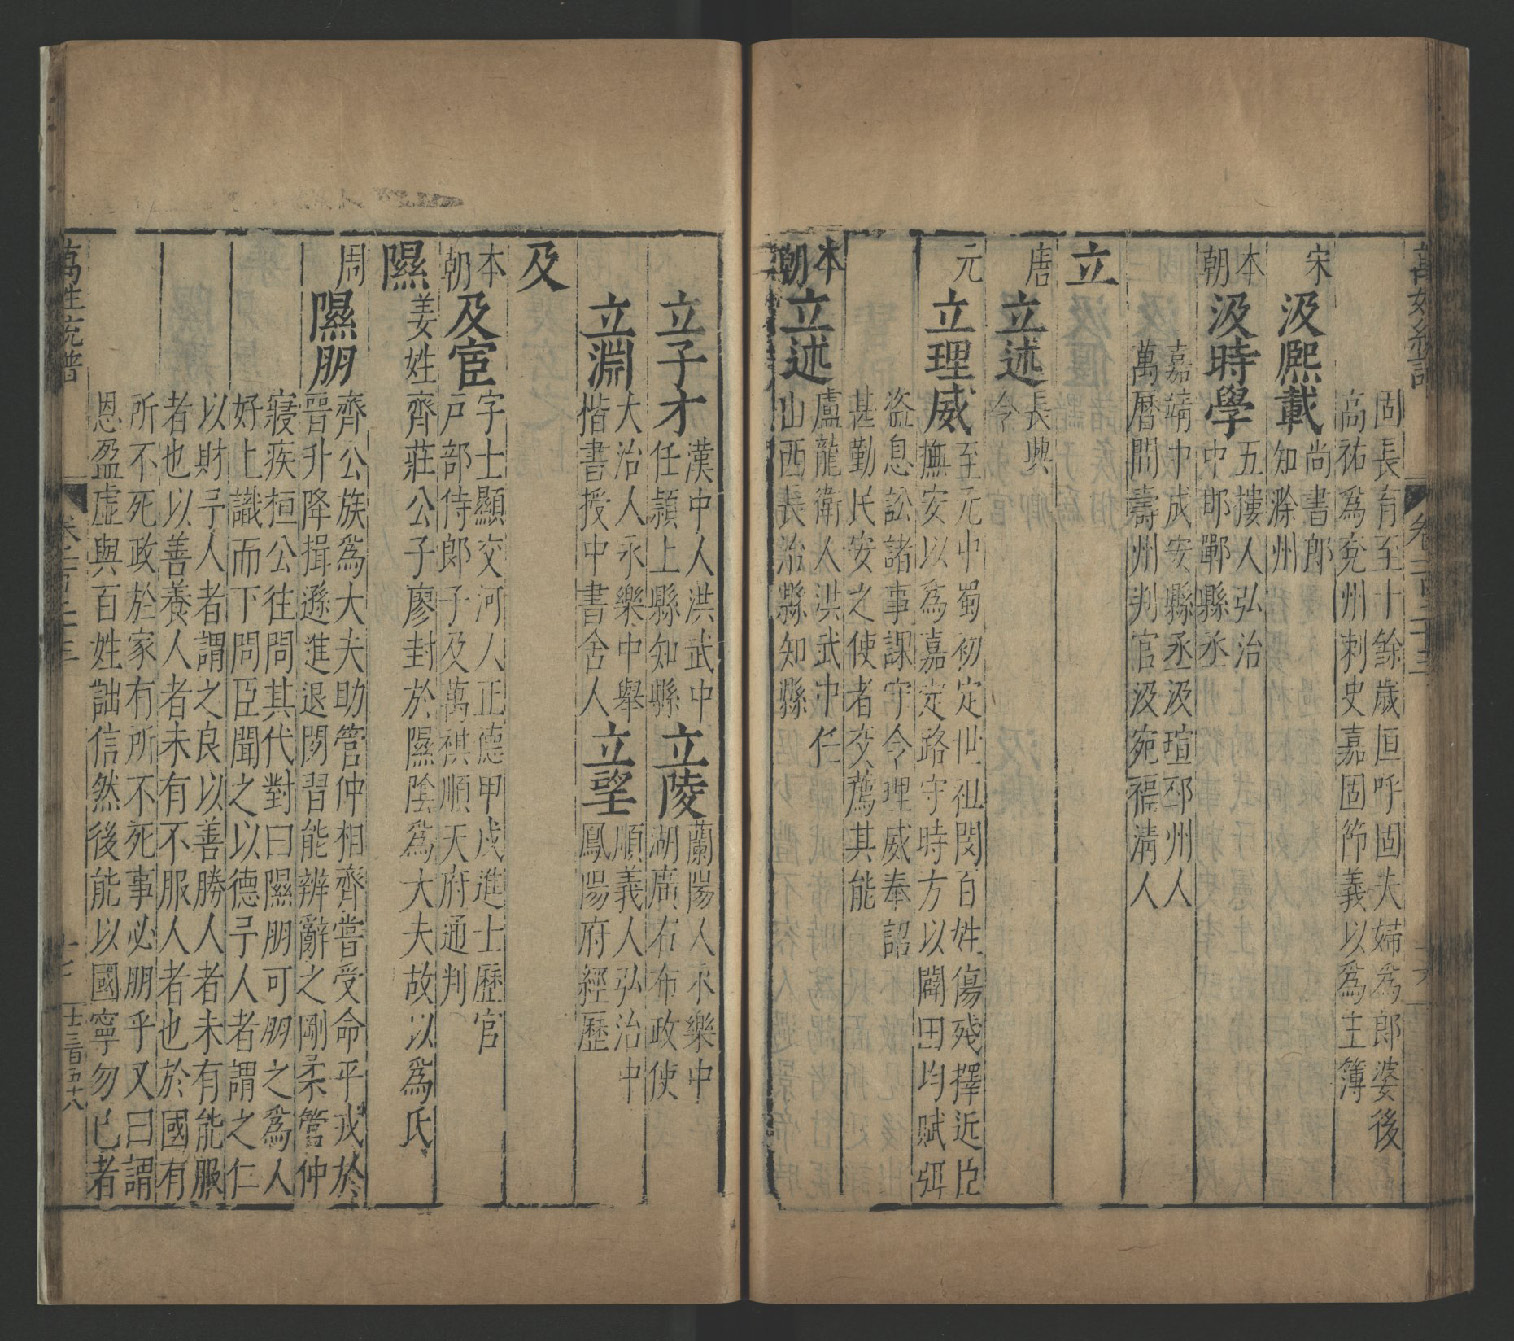 固長有至十餘歲恒呼固夫婦為郎婆後
高祐為兗州刺史嘉固節義以為主簿
宋 汲熈載 尚書郎
知滁州
本朝 汲時學 五樓人弘治
中邯鄲縣丞
嘉靖中成安縣丞汲瑄邳州人
萬曆間壽州判官汲宛福清人
立
唐 立述 長興
令
元 立理威 至元中蜀初定世祖閔百姓傷殘擇近臣
撫安以為嘉定路守時方以闢田均賦弭
盗息訟諸事課守令理威奉詔
甚勤民安之使者交薦其能
本朝 立述 盧龍衛人洪武中任
山西長治縣知縣
立子才 漢中人洪武中
任潁上縣知縣
立陵 蘭陽人永樂中
湖廣右布政使
立淵 大治人永樂中舉
楷書授中書舍人
立望 順義人弘治中
鳳陽府經歷
及
本朝 及宦 字士顯交河人正德甲戌進士歷官
戶部侍郎子及萬祺順天府通判
隰 姜姓齊莊公子廖封於隰陰為大夫故以為氏
周 隰朋 齊公族為大夫助管仲相齊嘗受命平戎於
晉升降揖遜進退閑習能辨辭之剛柔管仲
寢疾桓公往問其代對曰隰朋可朋之為人
好上識而下問臣聞之以德予人者謂之仁
以財予人者謂之良以善勝人者未有能服
者也以善養人者未有不服人者也於國有
所不死政於家有所不死事必朋乎又曰謂
恩盈虛與百姓詘信然後能以國寧勿已者
萬姓統譜 卷一百二十三